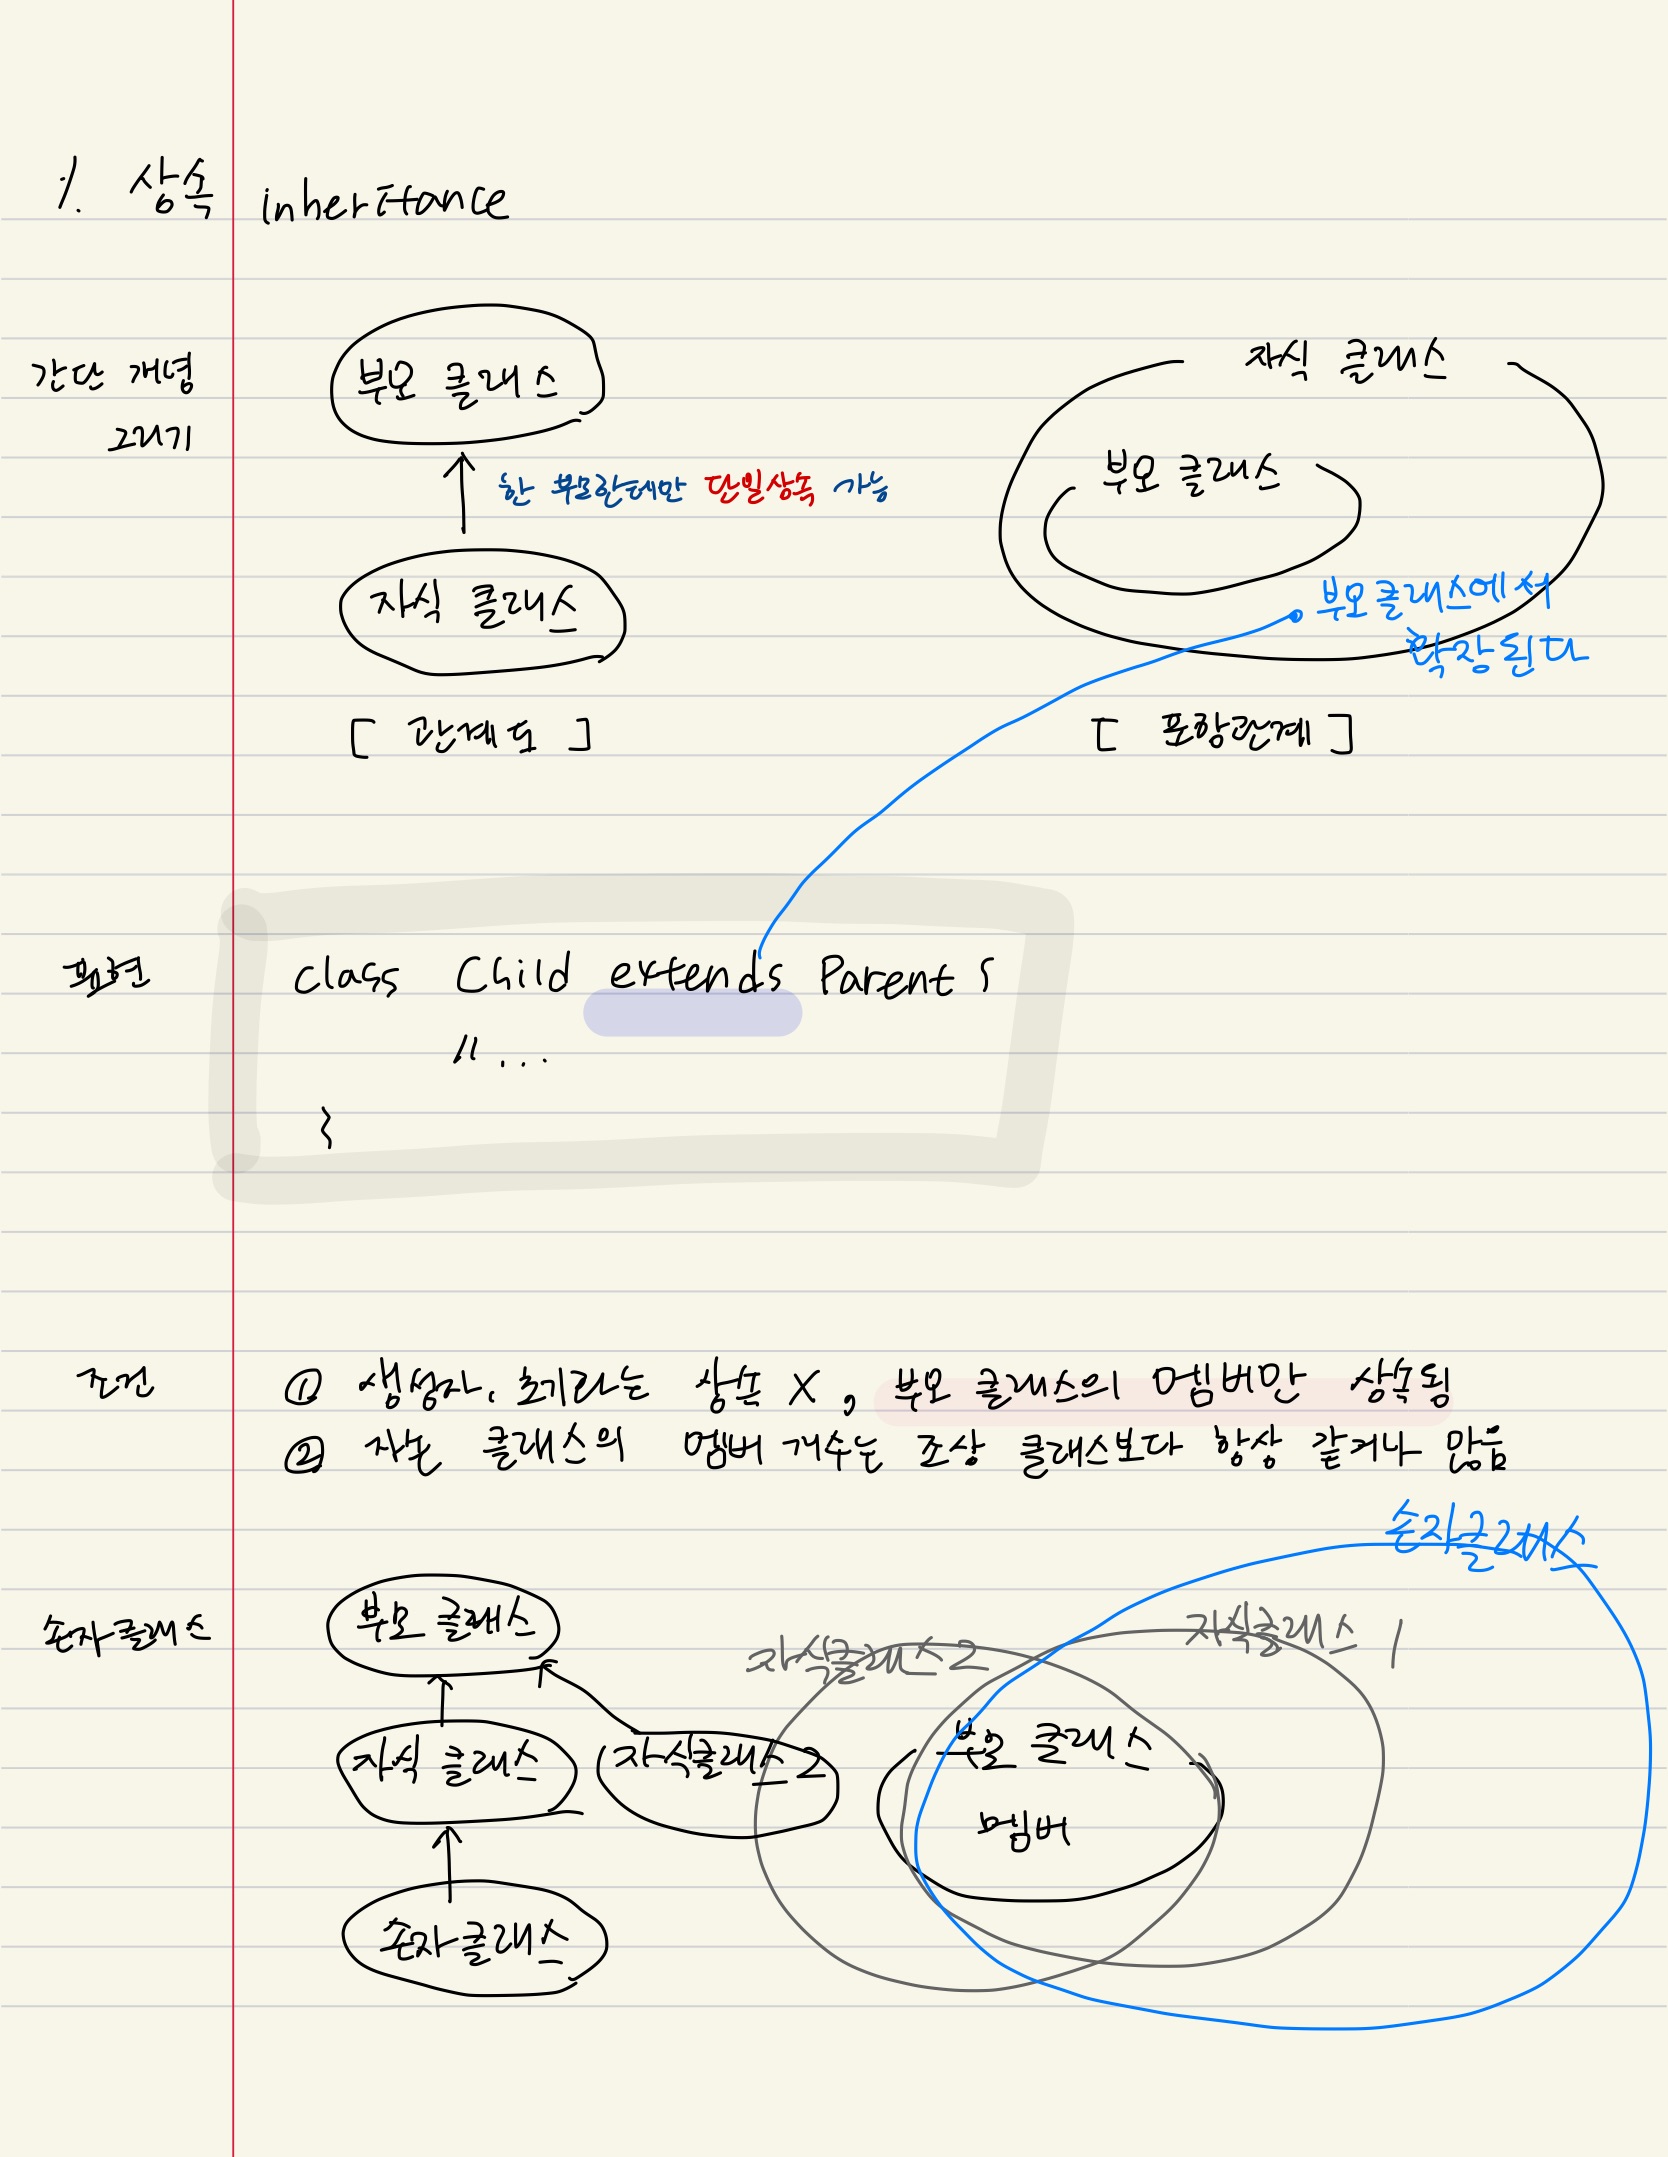 1. 상속
inheritance
간단 개념
그리기
부모 클래스
한 부모한테만 단일상속 가능
자식 클래스
[ 관계도 ]
자식 클래스
부모 클래스
부모클래스에서
확장된다
[ 포함관계 ]
표현
class Child extends Parent {
//...
}
조건
① 생성자, 초기화는 상속 X, 부모 클래스의 멤버만 상속됨
② 자손 클래스의 멤버 개수는 조상 클래스보다 항상 같거나 많음
손자클래스
부모 클래스
자식 클래스
자식클래스2
손자클래스
손자클래스
자식클래스 1
자식클래스2
부모 클래스
멤버